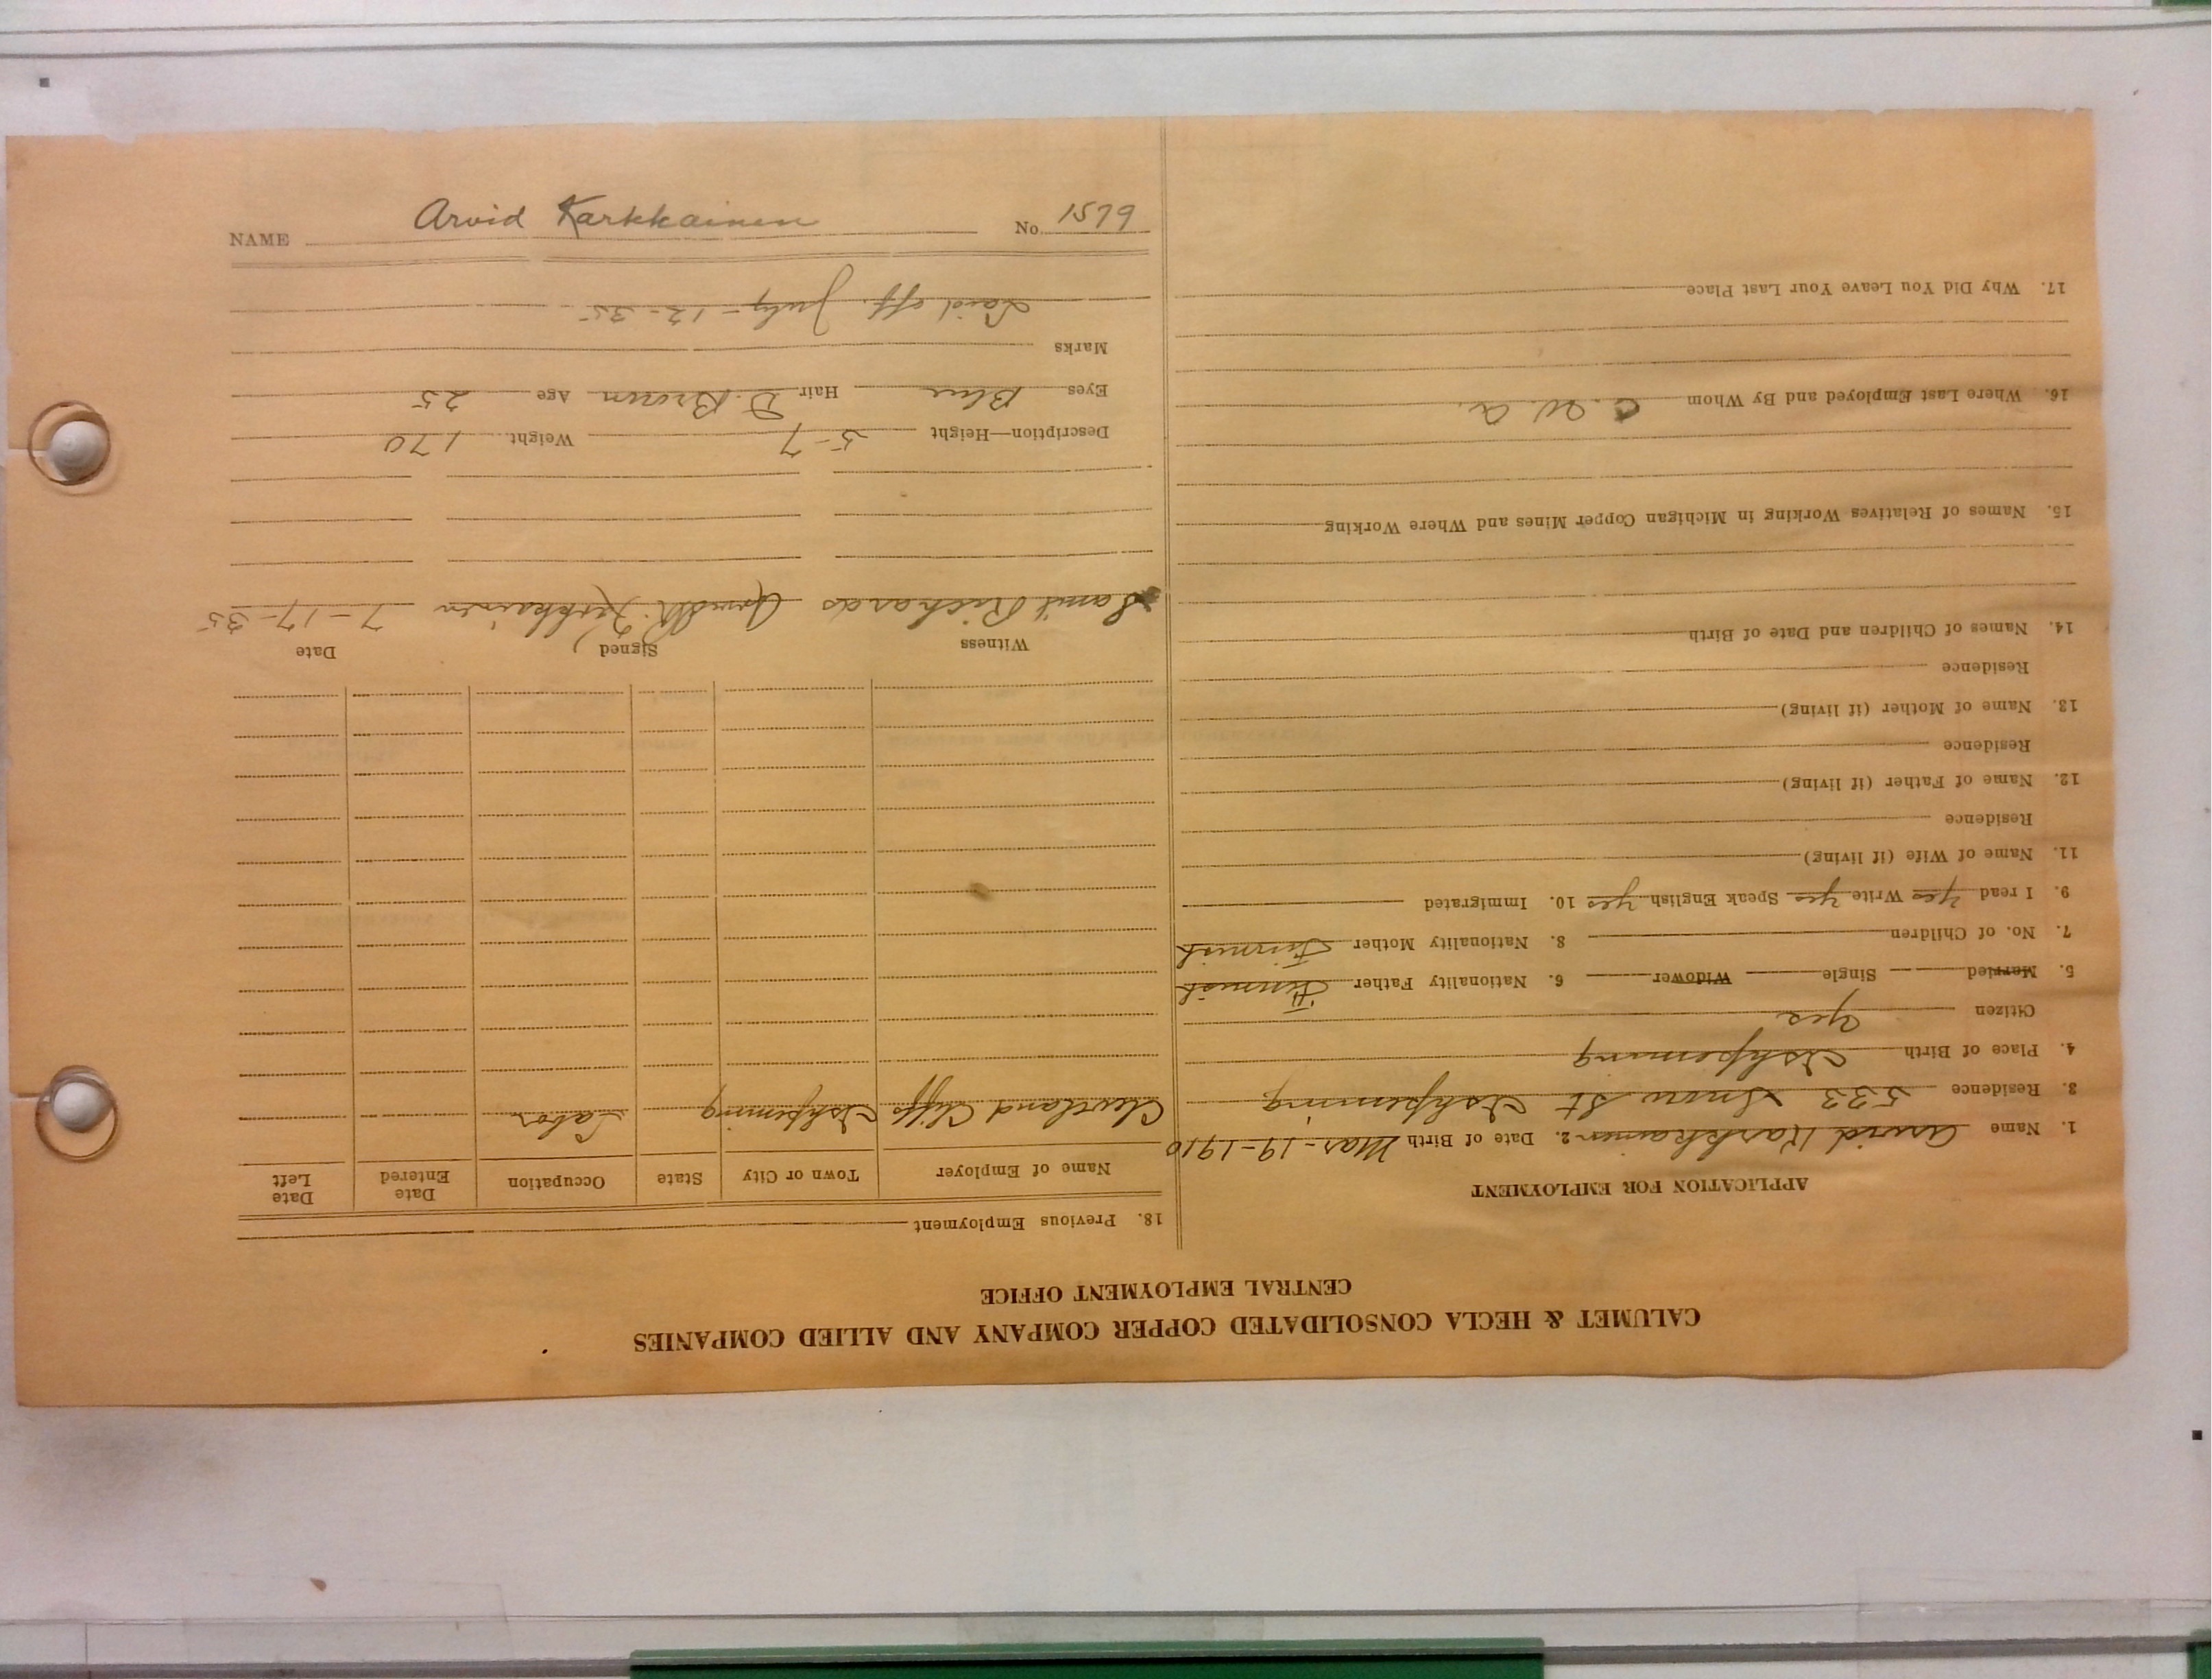 CALUMET & HECLA CONSOLIDATED COPPER COMPANY AND ALLIED COMPANIES
CENTRAL EMPLOYMENT OFFICE
APPLICATION FOR EMPLOYMENT
1. Name Arvid Karkkainen 2. Date of Birth Mar-19-1910
3. Residence 533 Snow St Ishpeming
4. Place of Birth Ishpeming
Citizen Yes
5. Married Single Widower 6. Nationality Father Finnish
7. No. of Children 8. Nationality Mother Finnish
9. I read Yes Write Yes Speak English Yes 10. Immigrated
11. Name of Wife (if living)
Residence
12. Name of Father (if living)
Residence
13. Name of Mother (if living)
Residence
14. Names of Children and Date of Birth
15. Names of Relatives Working in Michigan Copper Mines and Where Working
16. Where Last Employed and By Whom C. W. A.
17. Why Did You Leave Your Last Place
18. Previous Employment
Name of Employer Town or City State Occupation Date Entered Date Left
Cleveland Cliffs Ishpeming Labor
Witness Signed Date
Saml Richards Karkkainen 7-17-35
Description—Height 5-7 Weight 170
Eyes Blue Hair D. Brown Age 25
Marks
Laid off. July-12-35
NAME Arvid Karkkainen No. 1579